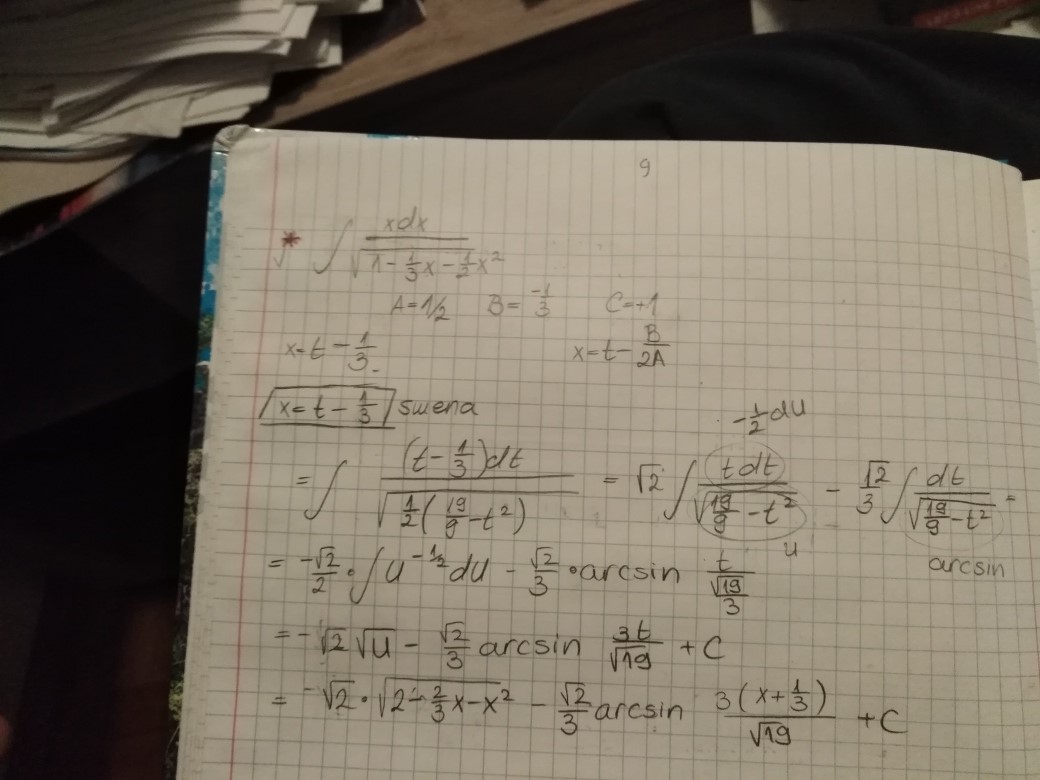 9
* ∫ xdx / √(1 - 1/3 x - 1/2 x²)
A=1/2 B= -1/3 C=+1
x=t - 1/3 x=t - B/2A
x=t - 1/3 smena
-1/2 du
= ∫ (t - 1/3)dt / √(1/2 (19/9 - t²)) = √2 ∫ tdt / √(19/9 - t²) - √2/3 ∫ dt / √(19/9 - t²) =
u arcsin
= -√2/2 · ∫ u^(-1/2) du - √2/3 · arcsin t / (√19/3)
= - √2 √u - √2/3 arcsin 3t/√19 + C
= - √2 · √(2 - 2/3 x - x²) - √2/3 arcsin 3(x + 1/3)/√19 + C